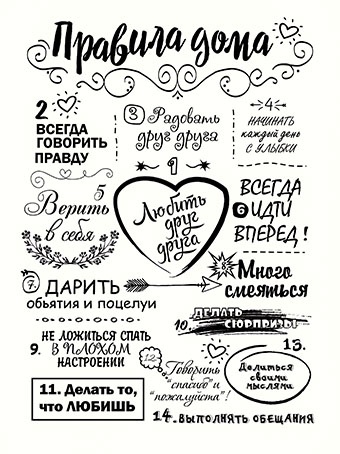 Правила дома
2
ВСЕГДА
ГОВОРИТЬ
ПРАВДУ
3 Радовать
друг друга
4
НАЧИНАТЬ
каждый день
С УЛЫБКИ
1
Любить
друг
друга
5
Верить
в себя
ВСЕГДА
6 ИДТИ
ВПЕРЕД!
7. ДАРИТЬ
обьятия и поцелуи
Много
смеяться
10. ДЕЛАТЬ
СЮРПРИЗЫ
НЕ ЛОЖИТЬСЯ СПАТЬ
9. В ПЛОХОМ
НАСТРОЕНИИ
12.
Говорить
"спасибо" и
"пожалуйста"!
13.
Делиться
своими
мыслями
11. Делать то,
что ЛЮБИШЬ
14. ВЫПОЛНЯТЬ ОБЕЩАНИЯ